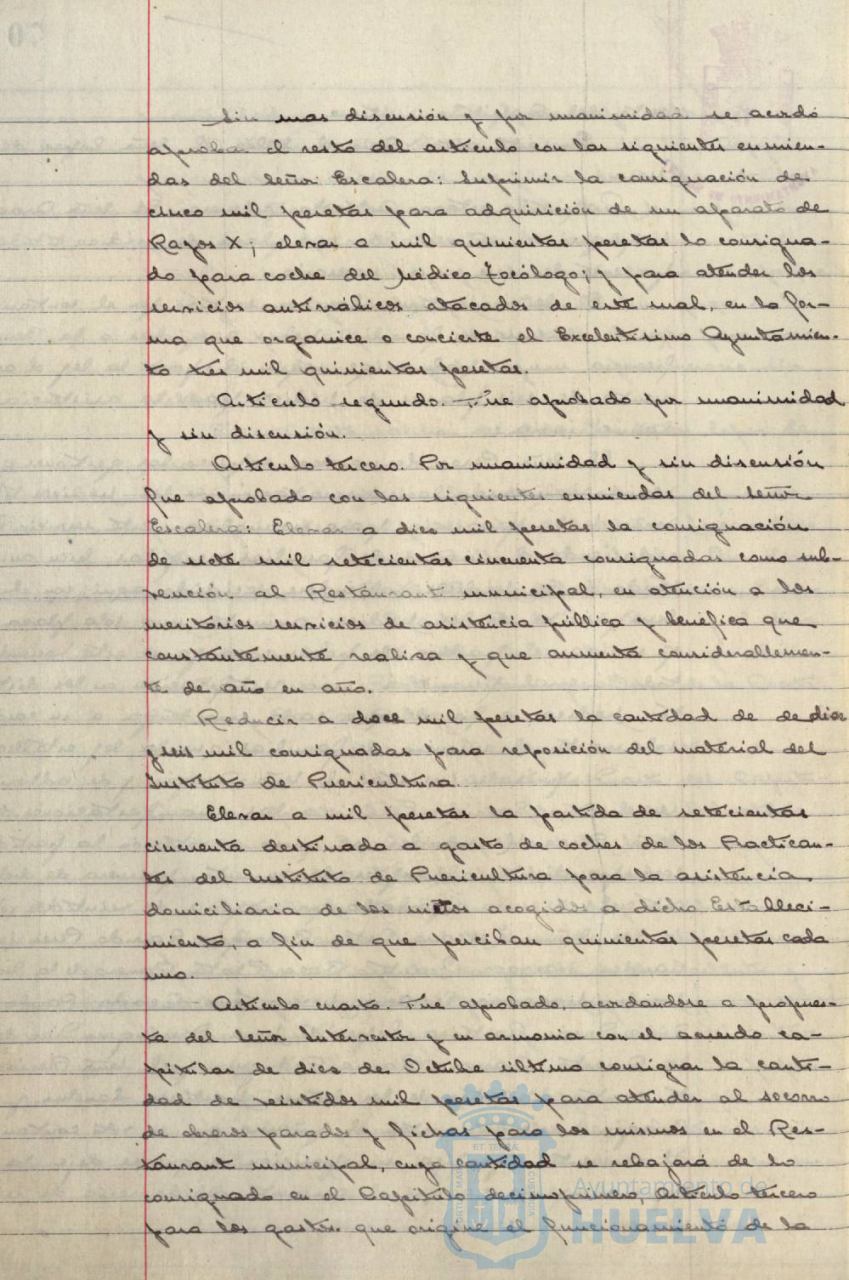 Sin mas discusión y por unanimidad se acordó
aprobar el resto del artículo con las siguientes enmien-
das del Señor Escalera: Suprimir la consignación de
cinco mil pesetas para adquisición de un aparato de
Rayos X; elevar a mil quinientas pesetas lo consigna-
do para coche del Médico Tocólogo; y para atender los
servicios antirrábicos atacados de este mal, en la for-
ma que organice o concierte el Excelentísimo Ayuntamien-
to tres mil quinientas pesetas.
Artículo segundo. Fue aprobado por unanimidad
y sin discusión.
Artículo tercero. Por unanimidad y sin discusión
fue aprobado con las siguientes enmiendas del Señor
Escalera: Elevar a diez mil pesetas la consignación
de siete mil setecientas cincuenta consignadas como sub-
vención al Restaurant municipal, en atención a los
meritorios servicios de asistencia pública y benéfica que
constantemente realiza y que aumenta considerablemen-
te de año en año.
Reducir a doce mil pesetas la cantidad de de diez
y seis mil consignadas para reposición del material del
Instituto de Puericultura.
Elevar a mil pesetas la partida de setecientas
cincuenta destinada a gasto de coches de los Practican-
tes del Instituto de Puericultura para la asistencia
domiciliaria de los niños acogidos a dicho Estableci-
miento, a fin de que perciban quinientas pesetas cada
uno.
Artículo cuarto. Fue aprobado, acordándose a propues-
ta del Señor Interventor y en armonia con el acuerdo ca-
pitular de diez de Octubre último consignar la canti-
dad de veintidos mil pesetas para atender al socorro
de obreros parados y fichas para los mismos en el Res-
taurant municipal, cuya cantidad se rebajará de lo
consignado en el Capítulo decimoprimero, Artículo tercero
para los gastos que origine el funcionamiento de la
Ayuntamiento de
HUELVA